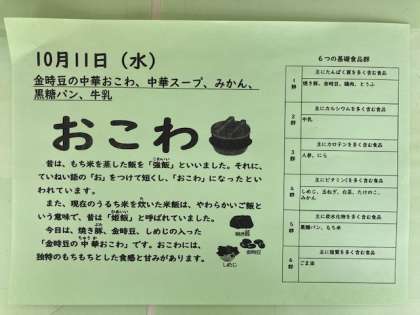 10月11日（水）
金時豆の中華おこわ、中華スープ、みかん、
黒糖パン、牛乳
おこわ
昔は、もち米を蒸した飯を「強飯」といいました。それに、
ていねい語の「お」をつけて短くし、「おこわ」になったとい
われています。
また、現在のうるち米を炊いた米飯は、やわらかいご飯と
いう意味で、昔は「姫飯」と呼ばれていました。
今日は、焼き豚、金時豆、しめじの入った
「金時豆の中華おこわ」です。おこわには、
独特のもちもちとした食感と甘みがあります。
焼き豚
金時豆
しめじ
６つの基礎食品群
1群
主にたんぱく質を多く含む食品
焼き豚、金時豆、鶏肉、とうふ
2群
主にカルシウムを多く含む食品
牛乳
3群
主にカロテンを多く含む食品
人参、にら
4群
主にビタミンCを多く含む食品
しめじ、玉ねぎ、白菜、たけのこ、
みかん
5群
主に炭水化物を多く含む食品
黒糖パン、もち米
6群
主に脂質を多く含む食品
ごま油